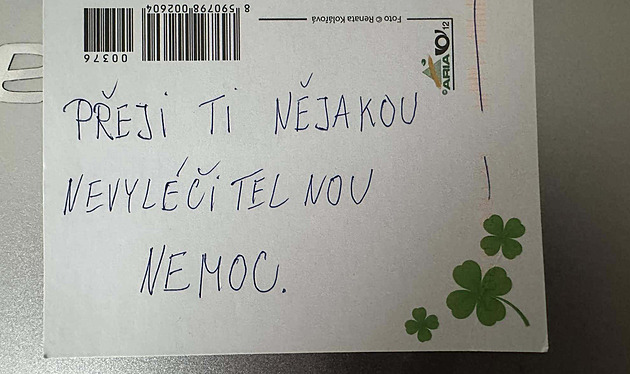 00376
8590798002604
Foto © Renata Kolářová
© ARIA 12
PŘEJI TI NĚJAKOU
NEVYLÉČITELNOU
NEMOC.